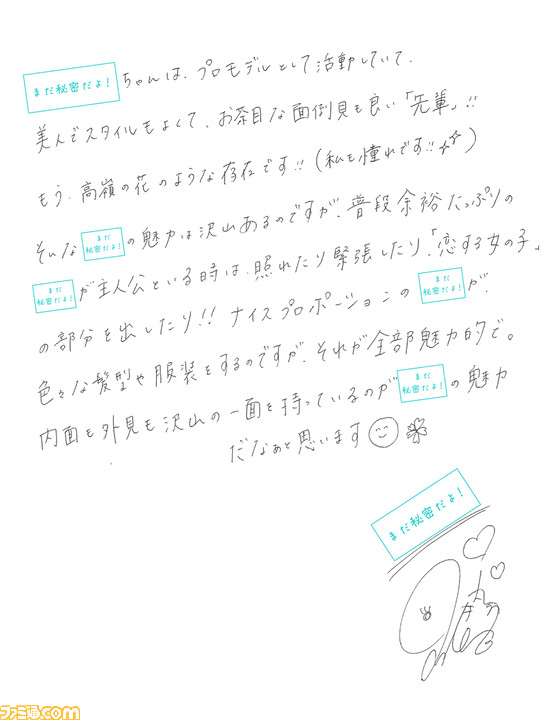 まだ秘密だよ！ちゃんは、プロモデルとして活動していて、
美人でスタイルもよくて、お茶目な面倒見も良い「先輩」!!
もう、高嶺の花のような存在です!!(私も憧れです!!)
そんなまだ秘密だよ！の魅力は沢山あるのですが、普段余裕たっぷりの
まだ秘密だよ！が主人公といる時は、照れたり緊張したり、「恋する女の子」
の部分を出したり!! ナイスプロポーションのまだ秘密だよ！が、
色々な髪型や服装をするのですが、それが全部魅力的で。
内面も外見も沢山の一面を持っているのがまだ秘密だよ！の魅力
だなぁと思います
まだ秘密だよ！
ファミ通.com